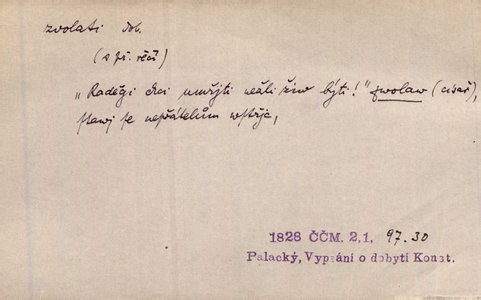 zvolati dok.
(s př. řečí)
„Raděgi chci umřjti nežli žiw býti!" zwolaw (císař),
stawj se nepřátelům wstřjc,
1828 ČČM. 2,1. 97.30
Palacký, Vypsání o dobytí Konst.